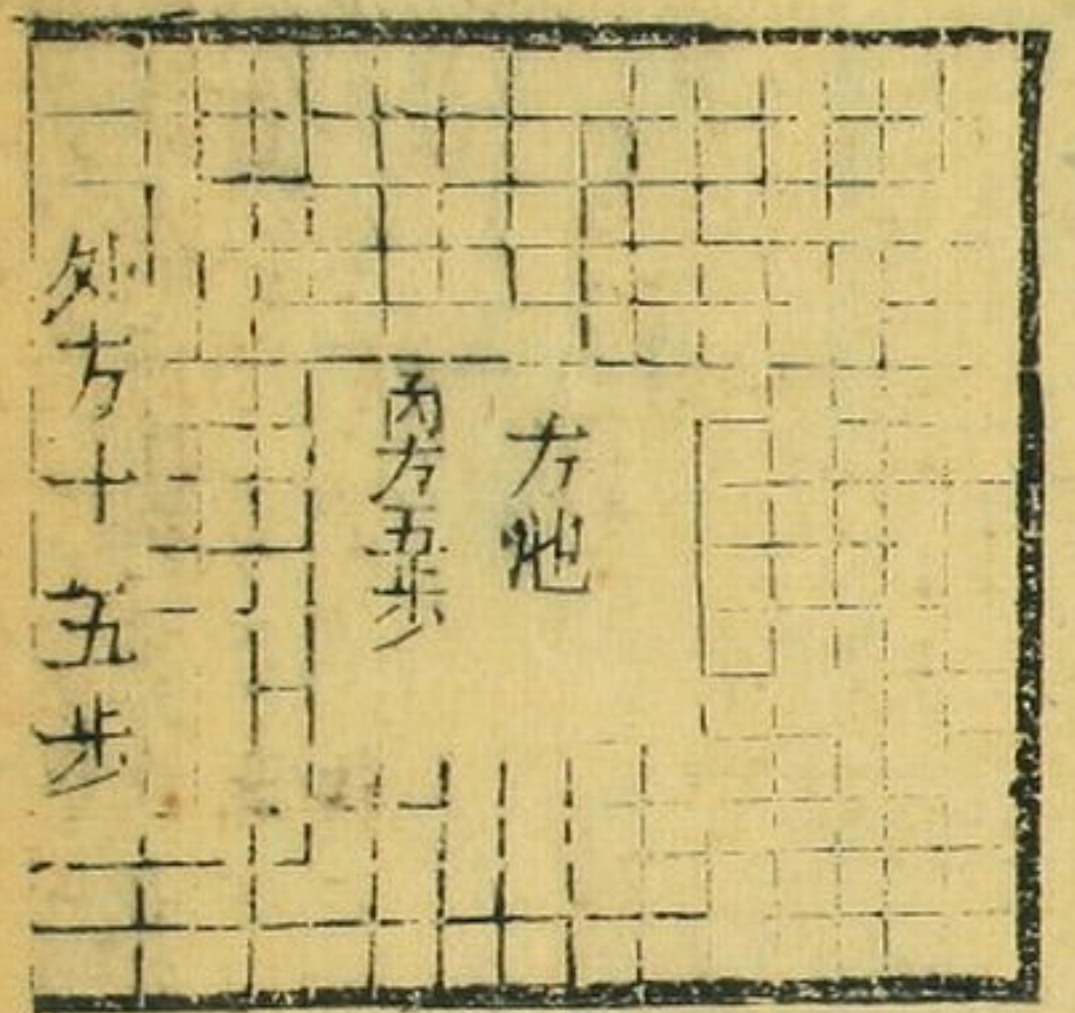 方池
丙方五步
外方十五步